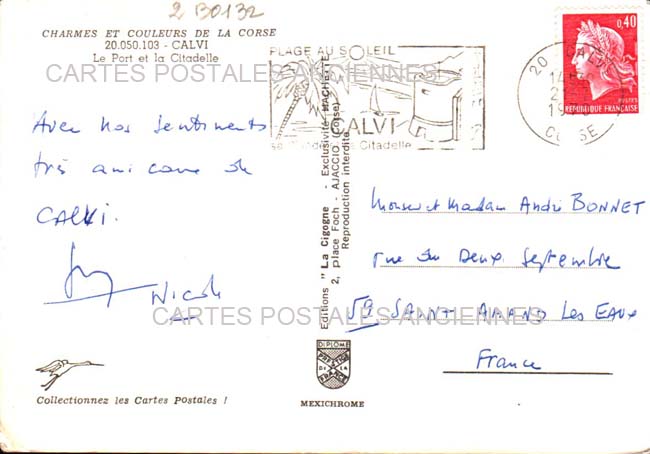 2 B0132
CHARMES ET COULEURS DE LA CORSE
20.050.103 - CALVI
Le Port et la Citadelle
CARTES POSTALES ANCIENNES
PLAGE AU SOLEIL
CALVI
Citadelle
20 CALVI
14
2
19
CORSE
0,40
POSTES
REPUBLIQUE FRANÇAISE
Avec nos sentiments
très amicaux de
CALVI.
Nicole
Editions "La Cigogne - Exclusivité HACHETTE
2, place Foch - AJACCIO (Corse)
Reproduction interdite
Monsieur et Madame André BONNET
rue du Deux Septembre
59 SAINT AMAND Les EAUX
France
CARTES POSTALES ANCIENNES
DIPLOME
PRESTIGE
DE LA
FRANCE
Collectionnez les Cartes Postales !
MEXICHROME